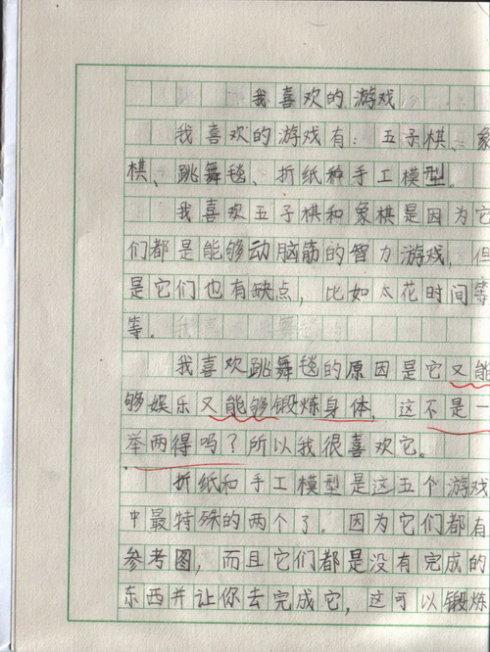 我喜欢的游戏
我喜欢的游戏有：五子棋、象
棋、跳舞毯、折纸和手工模型。
我喜欢五子棋和象棋是因为它
们都是能够动脑筋的智力游戏，但
是它们也有缺点，比如太花时间等
等。
我喜欢跳舞毯的原因是它又能
够娱乐又能够锻炼身体，这不是一
举两得吗？所以我很喜欢它。
折纸和手工模型是这五个游戏
中最特殊的两个了。因为它们都有
参考图，而且它们都是没有完成的
东西并让你去完成它，这可以锻炼